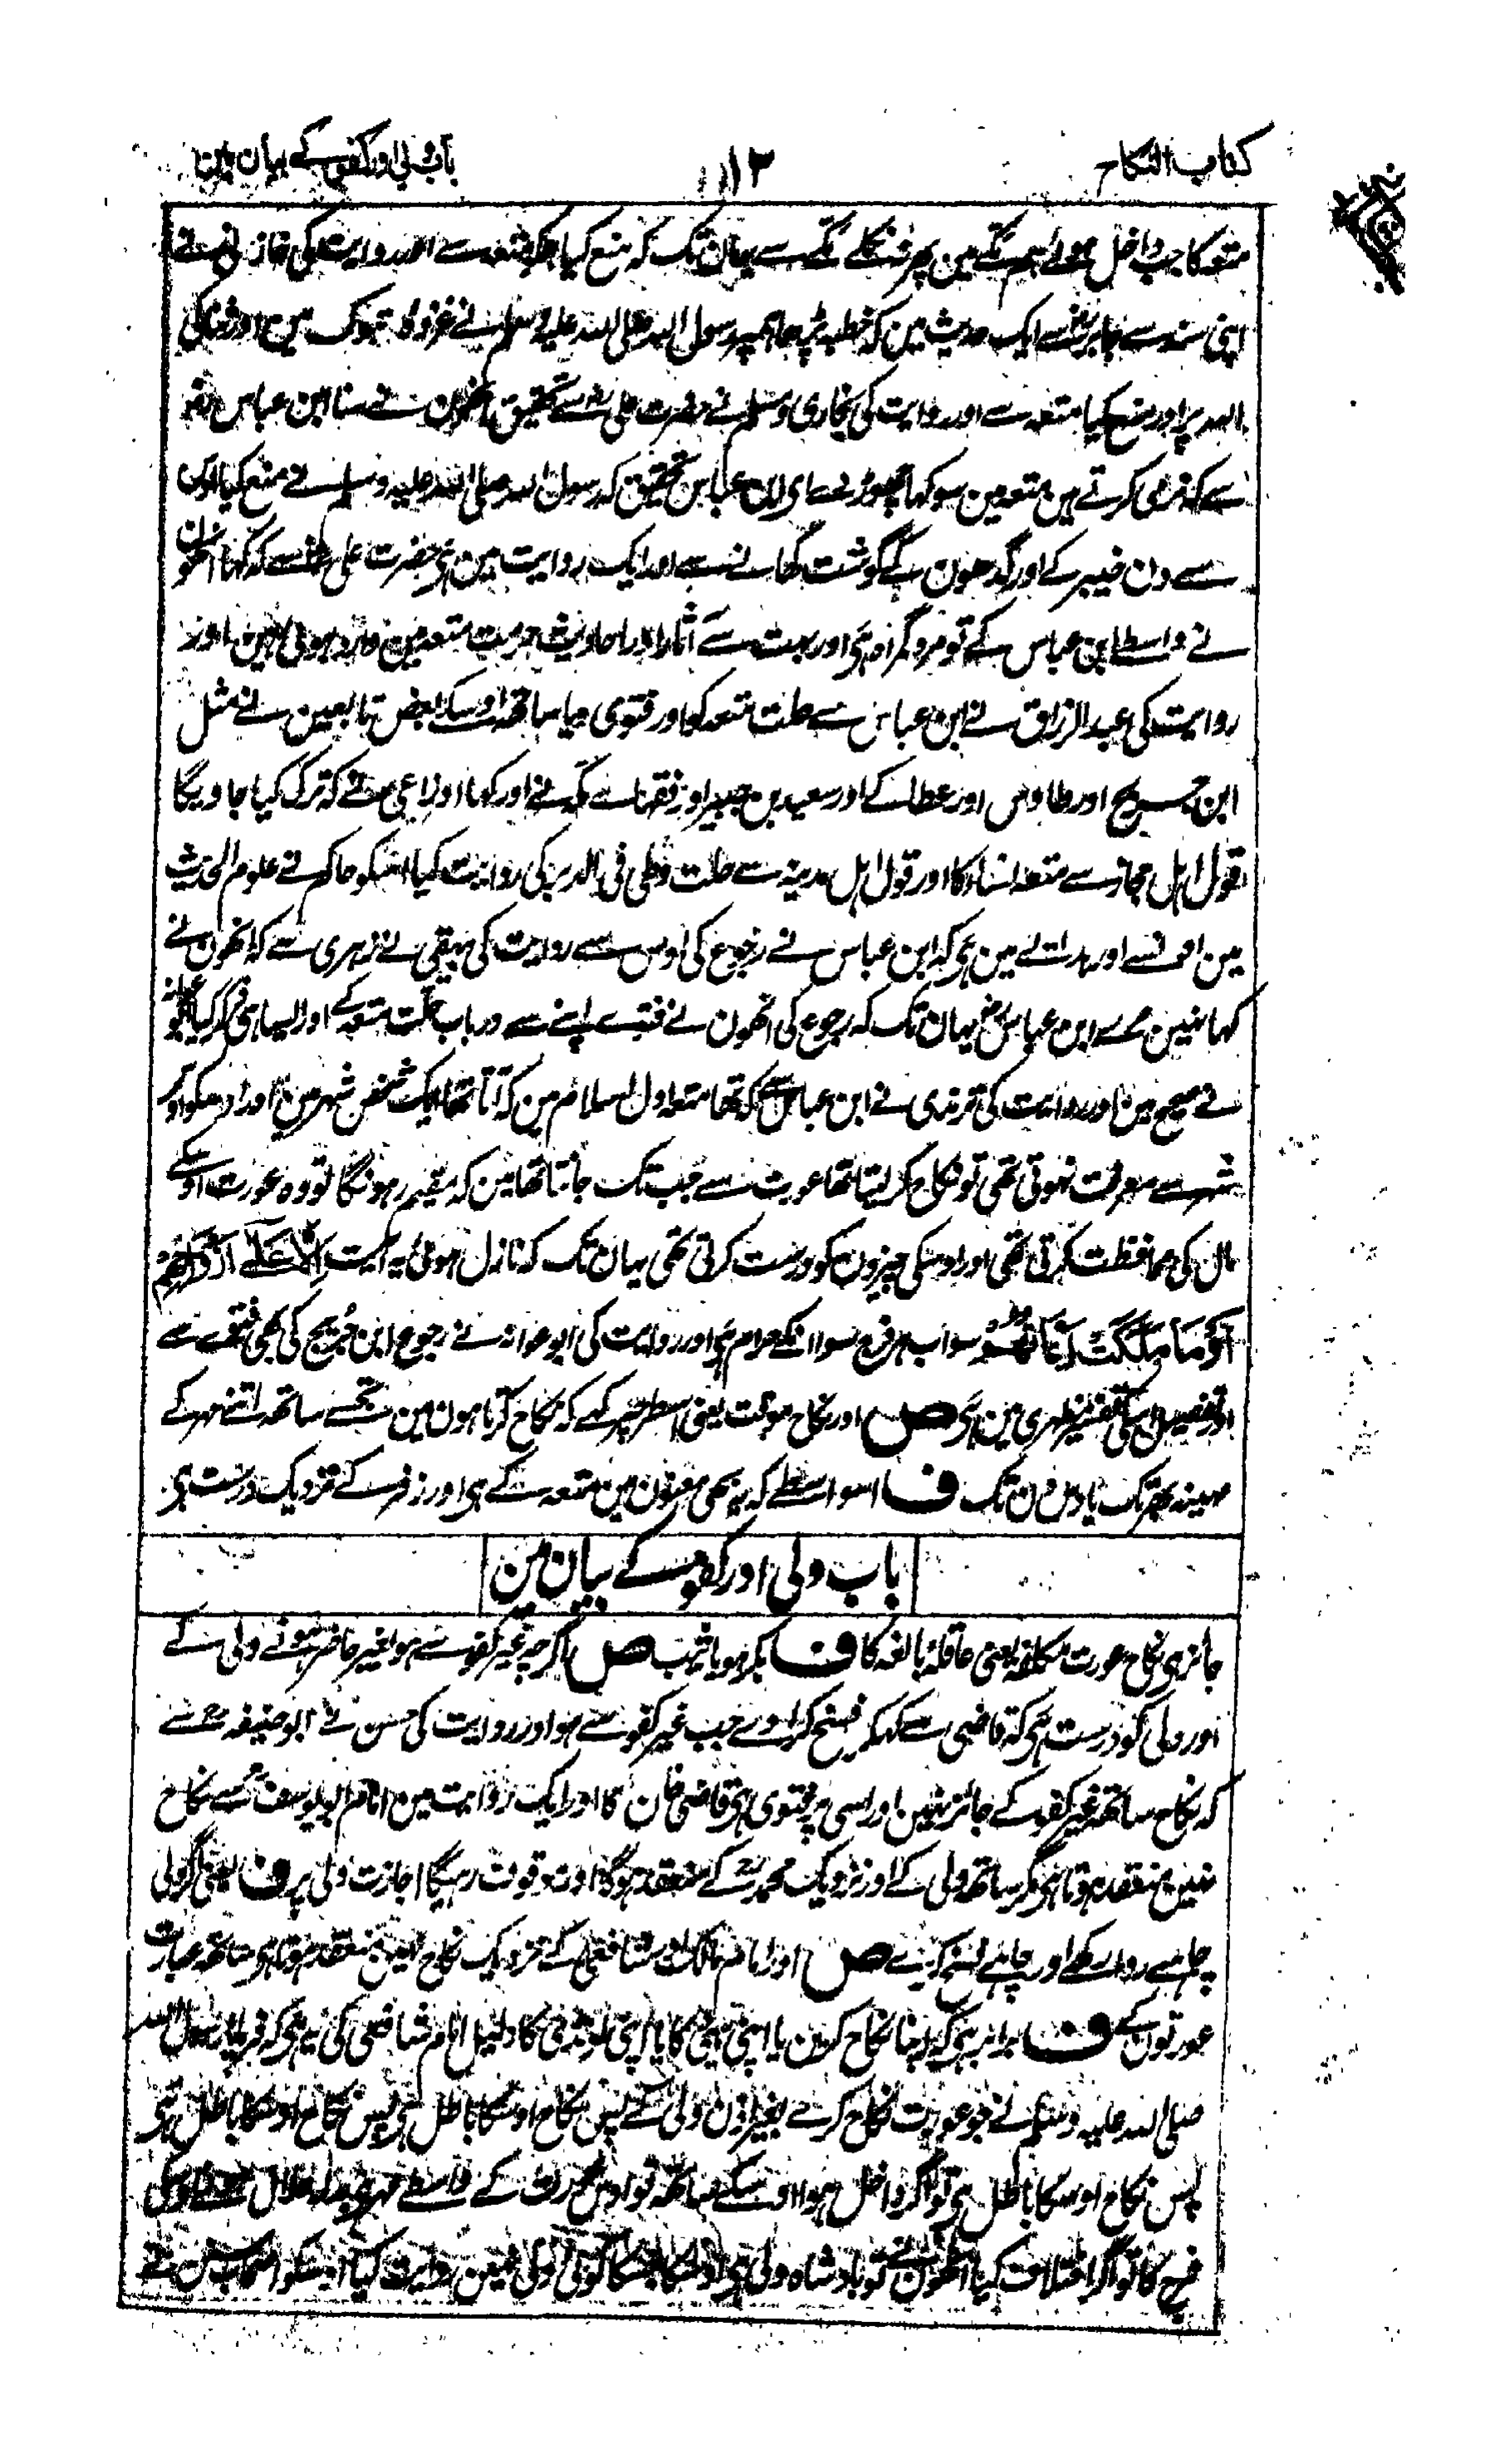 کتاب النکاح
۱۲
باب ولی اور کفو کے بیان مین
متعہ کا جب داخل ہوئے ہم مکے مین پھر نہ نکلے مکے سے یہان تک کہ منع کیا ہمکو متعہ سے اور روایت کی حازمی نے
اپنی سند سے جابر سے ایک حدیث مین کہ خطبہ پڑھا پھر رسول اللہ صلی اللہ علیہ وسلم نے غزوۂ تبوک مین اور ثنا کی
اللہ پر اور منع کیا متعہ سے اور روایت کی بخاری و مسلم نے حضرت علی سے تحقیق انھون نے سنا ابن عباس
سے کہ نرمی کرتے ہین متعہ مین سو کہا چھوڑ دے ای ابن عباس تحقیق کہ رسول اللہ صلی اللہ علیہ وسلم نے منع کیا اوس
سے دن خیبر کے اور گدھون کے گوشت کھانے سے اور ایک روایت مین ہی حضرت علی سے کہ کہا انھون
نے واسطے ابن عباس کے تو مرد گمراہ ہی اور بہت سے آثار اور احادیث حرمت متعہ مین وارد ہوئی ہین اور
روایت کی عبد الرزاق نے ابن عباس سے حلت متعہ کو اور فتوی دیا ساتھ اوسکے بعض تابعین نے مثل
ابن جریج اور طاوس اور عطا کے اور سعید بن جبیر اور فقہاے مکہ نے اور کہا اوزاعی نے کہ ترک کیا جاویگا
قول اہل حجاز سے متعہ نساء کا اور قول اہل مدینہ سے حلت وطی فی الدبر کی روایت کیا اسکو حاکم نے علوم الحدیث
مین اور ہدائے مین ہی کہ ابن عباس نے رجوع کی اوس سے روایت کی بیہقی نے زہری سے کہ انھون نے
کہا نہین مرے ابن عباس یہان تک کہ رجوع کی انھون نے فتوے اپنے سے درباب حلت متعہ کے اور ایسا ہی ذکر کیا ابو عوانہ
نے صحیح مین اور روایت کی ترمذی نے ابن عباس سے کہ تھا متعہ اول اسلام مین کہ آتا تھا ایک شخص شہر مین اور اوسکو اوس
شہر سے معرفت نہوتی تھی تو نکاح کر لیتا تھا عورت سے جب تک جانتا تھا مین کہ مقیم رہونگا تو وہ عورت اوسکے
مال کی محافظت کرتی تھی اور اوسکی چیزون کو درست کرتی تھی یہان تک کہ نازل ہوئی یہ آیت اِلَّا عَلٰی اَزْوَاجِهِمْ
اَوْ مَا مَلَكَتْ اَيْمَانُهُمْ سو اب ہر فرج سوا انکے حرام ہی اور روایت کی ابو عوانہ نے رجوع ابن جریج کی بھی فتوے سے
اور تفصیل اسکی تفسیر مظہری مین ہی ص اور نکاح موقت یعنی اسطرح پر کہے کہ نکاح کرتا ہون مین تجھسے ساتھ اتنے مہر کے
مہینہ بھر تک یا دس دن تک ف اسواسطے کہ یہ بھی معنون مین متعہ کے ہی اور زفر کے نزدیک درست ہی
باب ولی اور کفو کے بیان مین
جائز ہی نکاح عورت مکلفہ یعنی عاقلہ بالغہ کا ف بکر ہو یا ثیب ص اگرچہ غیر کفو سے ہو بغیر حاضر ہونے ولی کے
اور ولی کو درست ہی کہ قاضی سے کہکر فسخ کراوے جب غیر کفو سے ہو اور روایت کی حسن نے ابو حنیفہ سے
کہ نکاح ساتھ غیر کفو کے جائز نہین اور اسی پر فتوی ہی قاضی خان کا اور ایک روایت مین امام ابو یوسف سے نکاح
نہین منعقد ہوتا ہی مگر ساتھ ولی کے اور نزدیک محمد کے منعقد ہوگا اور موقوف رہیگا اجازت ولی پر ف یعنی اگر ولی
چاہے روا رکھے اور چاہے فسخ کرے ص اور امام مالک اور شافعی کے نزدیک نکاح نہین منعقد ہوتا ہی ساتھ عبارت
عورتون کے ف برابر ہی کہ اپنا نکاح کرین یا اپنی بیٹی کا یا اپنی لونڈی کا دلیل امام شافعی کی یہ ہی کہ فرمایا رسول اللہ
صلی اللہ علیہ وسلم نے جو عورت نکاح کرے بغیر اذن ولی کے پس نکاح اوسکا باطل ہی پس نکاح اوسکا باطل ہی
پس نکاح اوسکا باطل ہی تو اگر داخل ہوا اوسکے ساتھ تو اوس عورت کے واسطے مہر ہی بدلہ حلال
فرج کا تو اگر اختلاف کیا انھون نے تو بادشاہ ولی ہی اوسکا جسکا کوئی ولی نہین روایت کیا اسکو اصحاب سنن نے